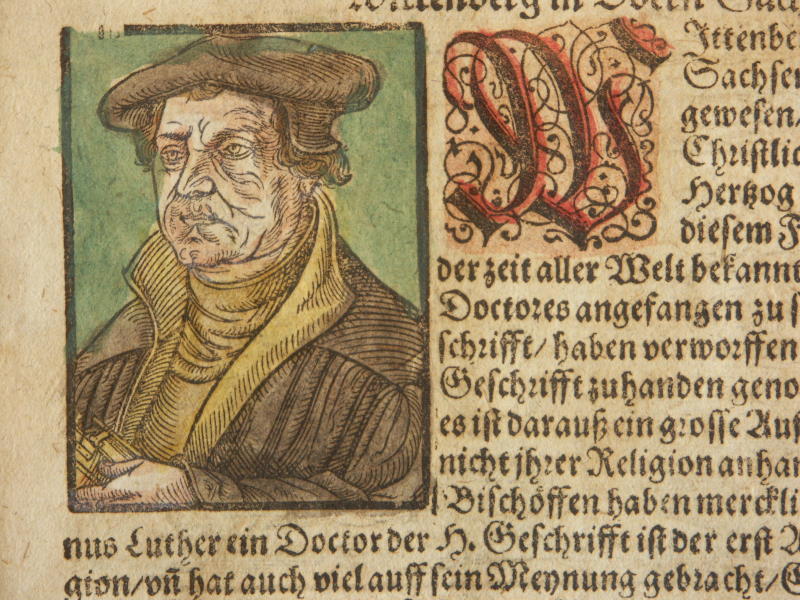 Wittenberg in Obern Sach
Ittenbe
Sachsen
gewesen/
Christlic
Hertzog
diesem F
der zeit aller Welt bekannt
Doctores angefangen zu s
schrifft/ haben verworffen
Geschrifft zuhanden geno
es ist darauß ein grosse Auf
nicht jhrer Religion anhan
Bischöffen haben merckli
nus Luther ein Doctor der H. Geschrifft ist der erst A
gion/ vñ hat auch viel auff sein Meynung gebracht/ E